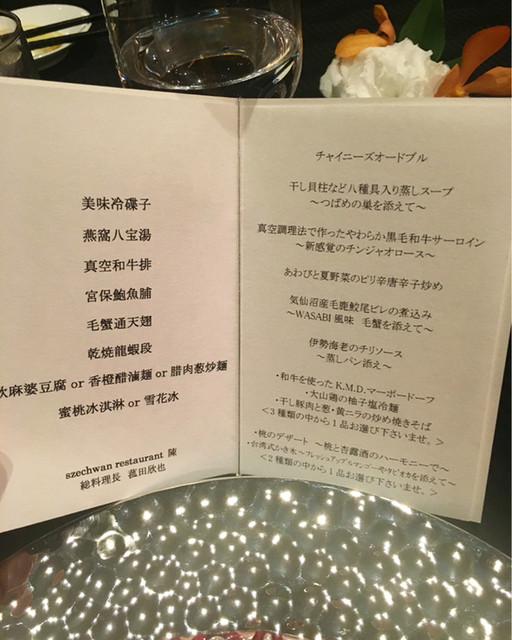 美味冷碟子
燕窩八宝湯
真空和牛排
宮保鮑魚脯
毛蟹通天翅
乾焼龍蝦段
麻婆豆腐 or 香橙醋滷麺 or 腊肉葱炒麺
蜜桃冰淇淋 or 雪花冰
szechwan restaurant 陳
総料理長 菰田欣也
チャイニーズオードブル
干し貝柱など八種具入り蒸しスープ
～つばめの巣を添えて～
真空調理法で作ったやわらか黒毛和牛サーロイン
～新感覚のチンジャオロース～
あわびと夏野菜のピリ辛唐辛子炒め
気仙沼産毛鹿鮫尾ビレの煮込み
～WASABI風味 毛蟹を添えて～
伊勢海老のチリソース
～蒸しパン添え～
・和牛を使ったK.M.D.マーボードーフ
・大山鶏の柚子塩冷麺
・干し豚肉と葱・黄ニラの炒め焼きそば
＜3種類の中から1品お選び下さいませ。＞
・桃のデザート ～桃と杏露酒のハーモニーで～
・台湾式かき氷～フレッシュアップルマンゴーやタピオカを添えて～
＜2種類の中から1品お選び下さいませ。＞